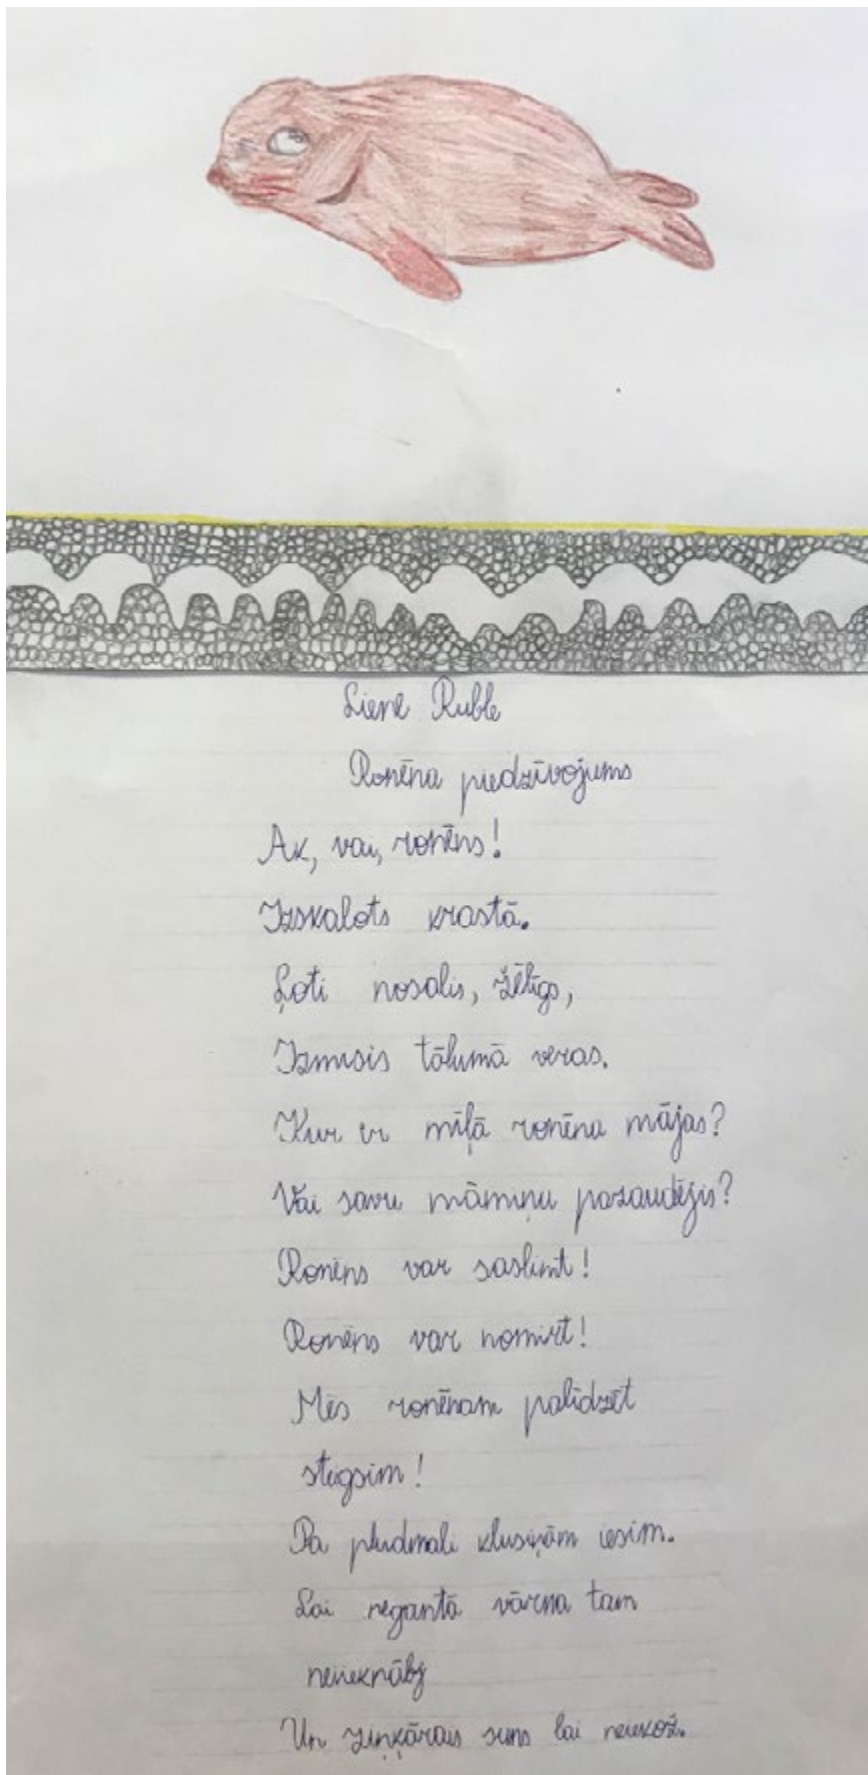 Liene Ruble
Ronēna piedzīvojums
Ak, vai, ronēns!
Izskalots krastā.
Ļoti nosalis, žēlīgs,
Izmisis tālumā veras.
Kur ir mīļā ronēna mājas?
Vai savu māmiņu pazaudējis?
Ronēns var saslimt!
Ronēns var nomirt!
Mēs ronēnam palīdzēt
steigsim!
Pa pludmali klusiņām iesim.
Lai negantā vārna tam
neieknābj
Un ziņkārais suns lai neiekož.